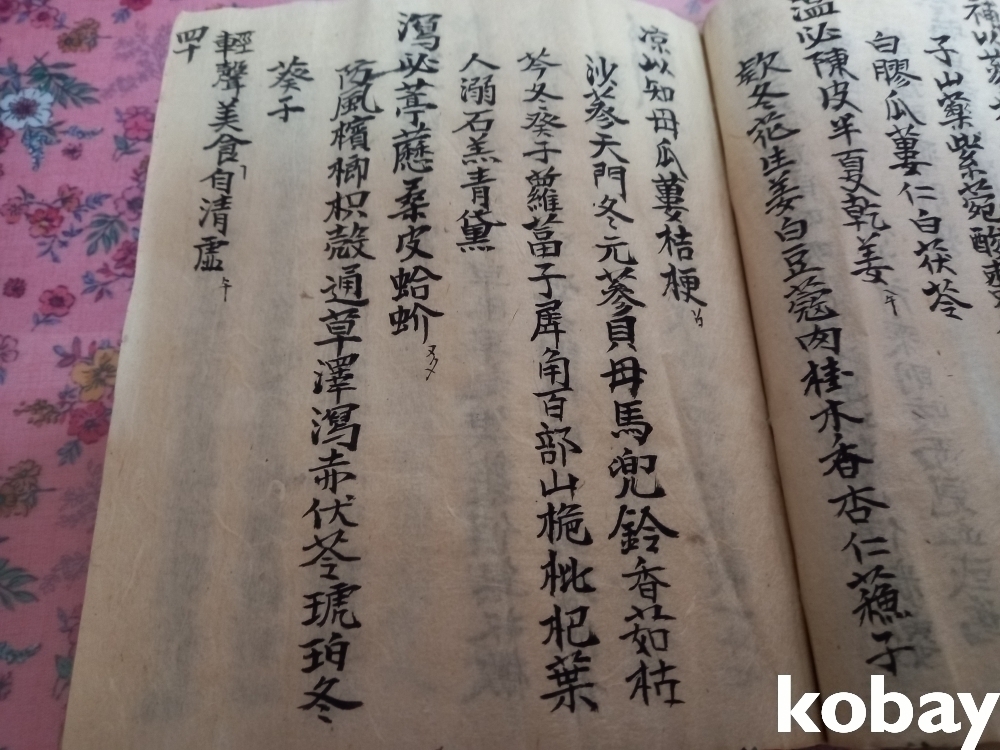 補以
子山藥紫菀酸
白膠瓜蔞仁白茯苓
溫必陳皮半夏乾姜
欵冬花生姜白豆蔻肉桂木香杏仁蘓子
凉以知母瓜蔞桔梗
沙蔘天門冬元蔘貝母馬兜鈴香茹枯
芩冬葵子蘿葍子犀角百部山梔枇杷葉
人溺石羔青黛
瀉必葶藶桑皮蛤蚧
防風檳榔枳殼通草澤瀉赤伏苓琥珀冬
葵子
輕聲美食自清虛
四十
kobay